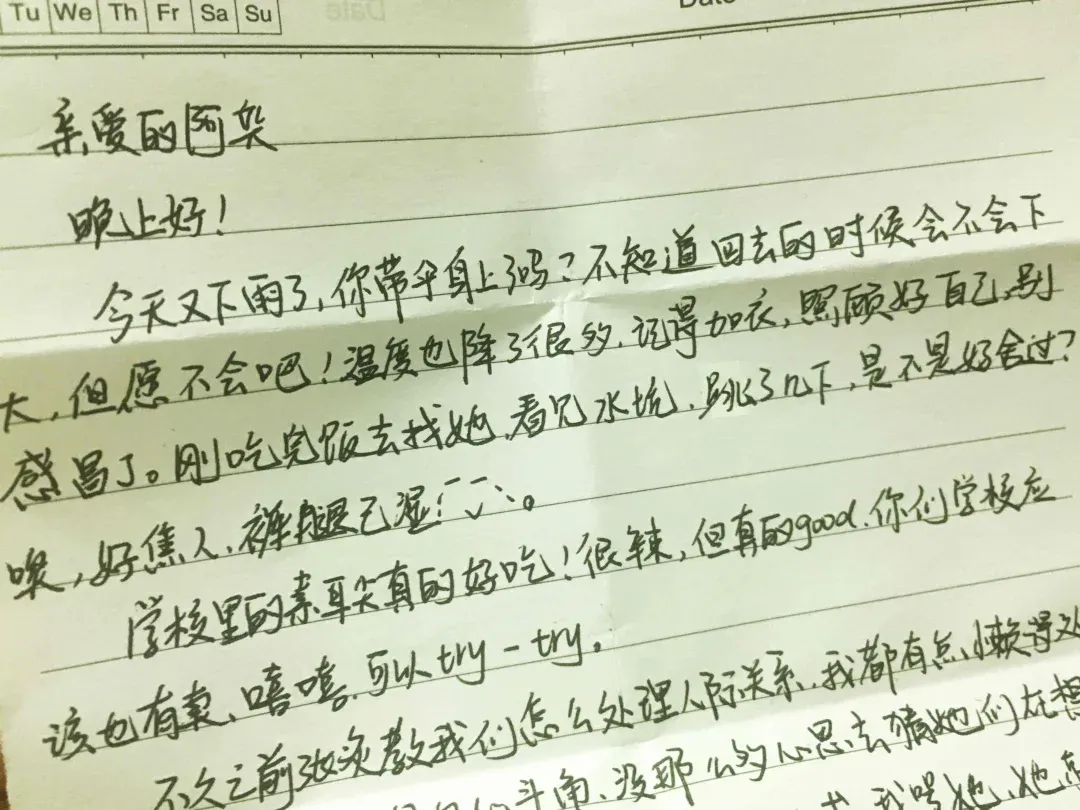 Tu We Th Fr Sa Su
Date
Date
亲爱的阿染
晚上好!
今天又下雨了,你带伞身上了吗?不知道回去的时候会不会下
大,但愿不会吧!温度也降了很多,记得加衣,照顾好自己,别
感冒了。刚吃完饭去找她,看见水坑,跳了几下,是不是好舍过?
唉,好焦人,裤腿已湿!
学校里的素耳尖真的好吃!很辣,但真的good.你们学校应
该也有卖,嘻嘻,可以try-try。
不久之前 教我们怎么处理人际关系,我都有点懒得处
斗角,没那么多心思去猜她们在想
我 她,她